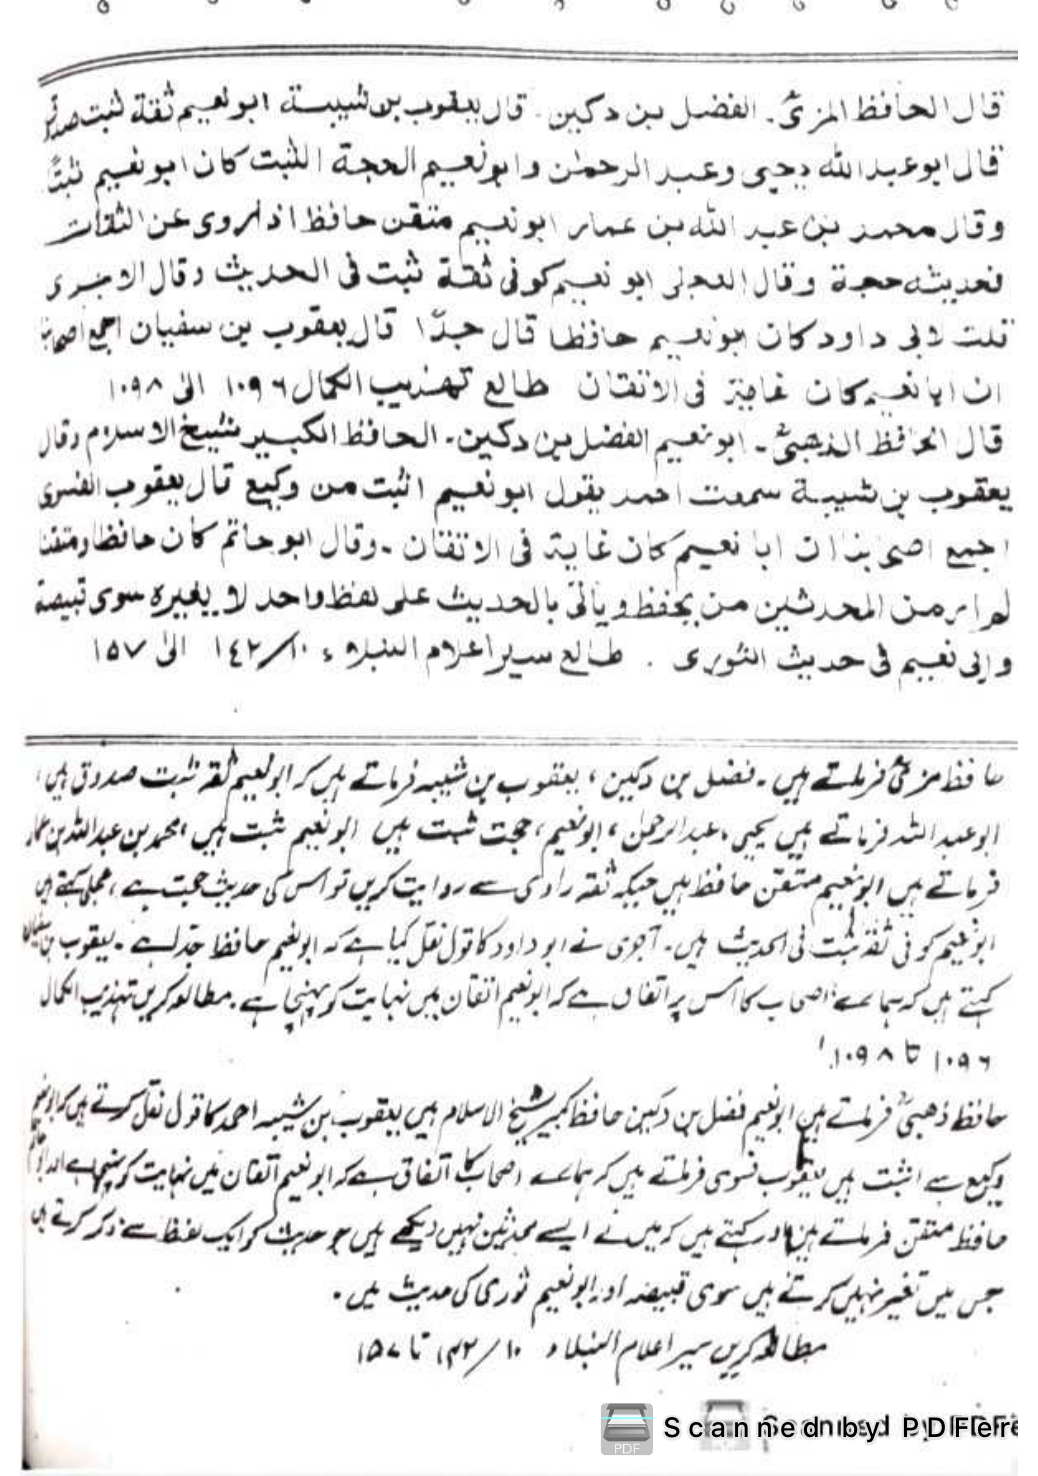 قال الحافظ المزیؒ۔ الفضل بن دکین۔ قال یعقوب بن شیبة ابو نعیم ثقة ثبت صدوق
قال ابو عبد الله یحیی وعبد الرحمٰن وابو نعیم الحجة الثبت کان ابو نعیم ثبتاً
وقال محمد بن عبد الله بن عمار ابو نعیم متقن حافظ اذا روی عن الثقات
فحدیثه حجة وقال العجلی ابو نعیم کوفی ثقة ثبت فی الحدیث وقال الاجری
قلت لابی داود کان ابو نعیم حافظا قال جدّا قال یعقوب بن سفیان اجمع اصحابنا
ان ابا نعیم کان غایة فی الاتقان طالع تهذیب الکمال ١٠٩٦ الیٰ ١٠٩٨
قال الحافظ الذهبیؒ۔ ابو نعیم الفضل بن دکین۔ الحافظ الکبیر شیخ الاسلام وقال
یعقوب بن شیبة سمعت احمد یقول ابو نعیم اثبت من وکیع قال یعقوب الفسوی
اجمع اصحابنا ان ابا نعیم کان غایة فی الاتقان ۔وقال ابو حاتم کان حافظا ومتقنا
لم ار من المحدثین من یحفظ ویأتی بالحدیث علی لفظ واحد لا یغیره سوی قبیصة
وابی نعیم فی حدیث الثوری . طالع سیر اعلام النبلاء ١٠/١٤٢ الیٰ ١٥٧
حافظ مزیؒ فرماتے ہیں۔ فضل بن دکین، یعقوب بن شیبہ فرماتے ہیں کہ ابو نعیم ثقہ ثبت صدوق ہیں،
ابو عبد اللہ فرماتے ہیں یحییٰ، عبد الرحمٰن، ابو نعیم، حجت ثبت ہیں ابو نعیم ثبت ہیں، محمد بن عبد اللہ بن عمار
فرماتے ہیں ابو نعیم متقن حافظ ہیں جبکہ ثقہ راوی سے روایت کریں تو اس کی حدیث حجت ہے، عجلی کہتے ہیں
ابو نعیم کوفی ثقہ ثبت فی الحدیث ہیں۔ آجری نے ابو داود کا قول نقل کیا ہے کہ ابو نعیم حافظ جدا ہے۔ یعقوب بن سفیان
کہتے ہیں کہ ہمارے اصحاب کا اس پر اتفاق ہے کہ ابو نعیم اتقان میں نہایت کو پہنچا ہے۔ مطالعہ کریں تہذیب الکمال
۱۰۹۶ تا ۱۰۹۸
حافظ ذھبیؒ فرماتے ہیں ابو نعیم فضل بن دکین حافظ کبیر شیخ الاسلام ہیں یعقوب بن شیبہ احمد کا قول نقل کرتے ہیں کہ ابو نعیم
وکیع سے اثبت ہیں یعقوب فسوی فرماتے ہیں کہ ہمارے اصحاب کا اتفاق ہے کہ ابو نعیم اتقان میں نہایت کو پہنچا ہے اور ابو حاتم
حافظ متقن فرماتے ہیں اور کہتے ہیں کہ میں نے ایسے محدثین نہیں دیکھے ہیں جو حدیث کو ایک لفظ سے ذکر کرتے ہیں
جس میں تغیر نہیں کرتے ہیں سوی قبیصہ اور ابو نعیم ثوری کی حدیث میں۔
مطالعہ کریں سیر اعلام النبلاء ۱۰/۱۴۲ تا ۱۵۷
Scanned by PDFere